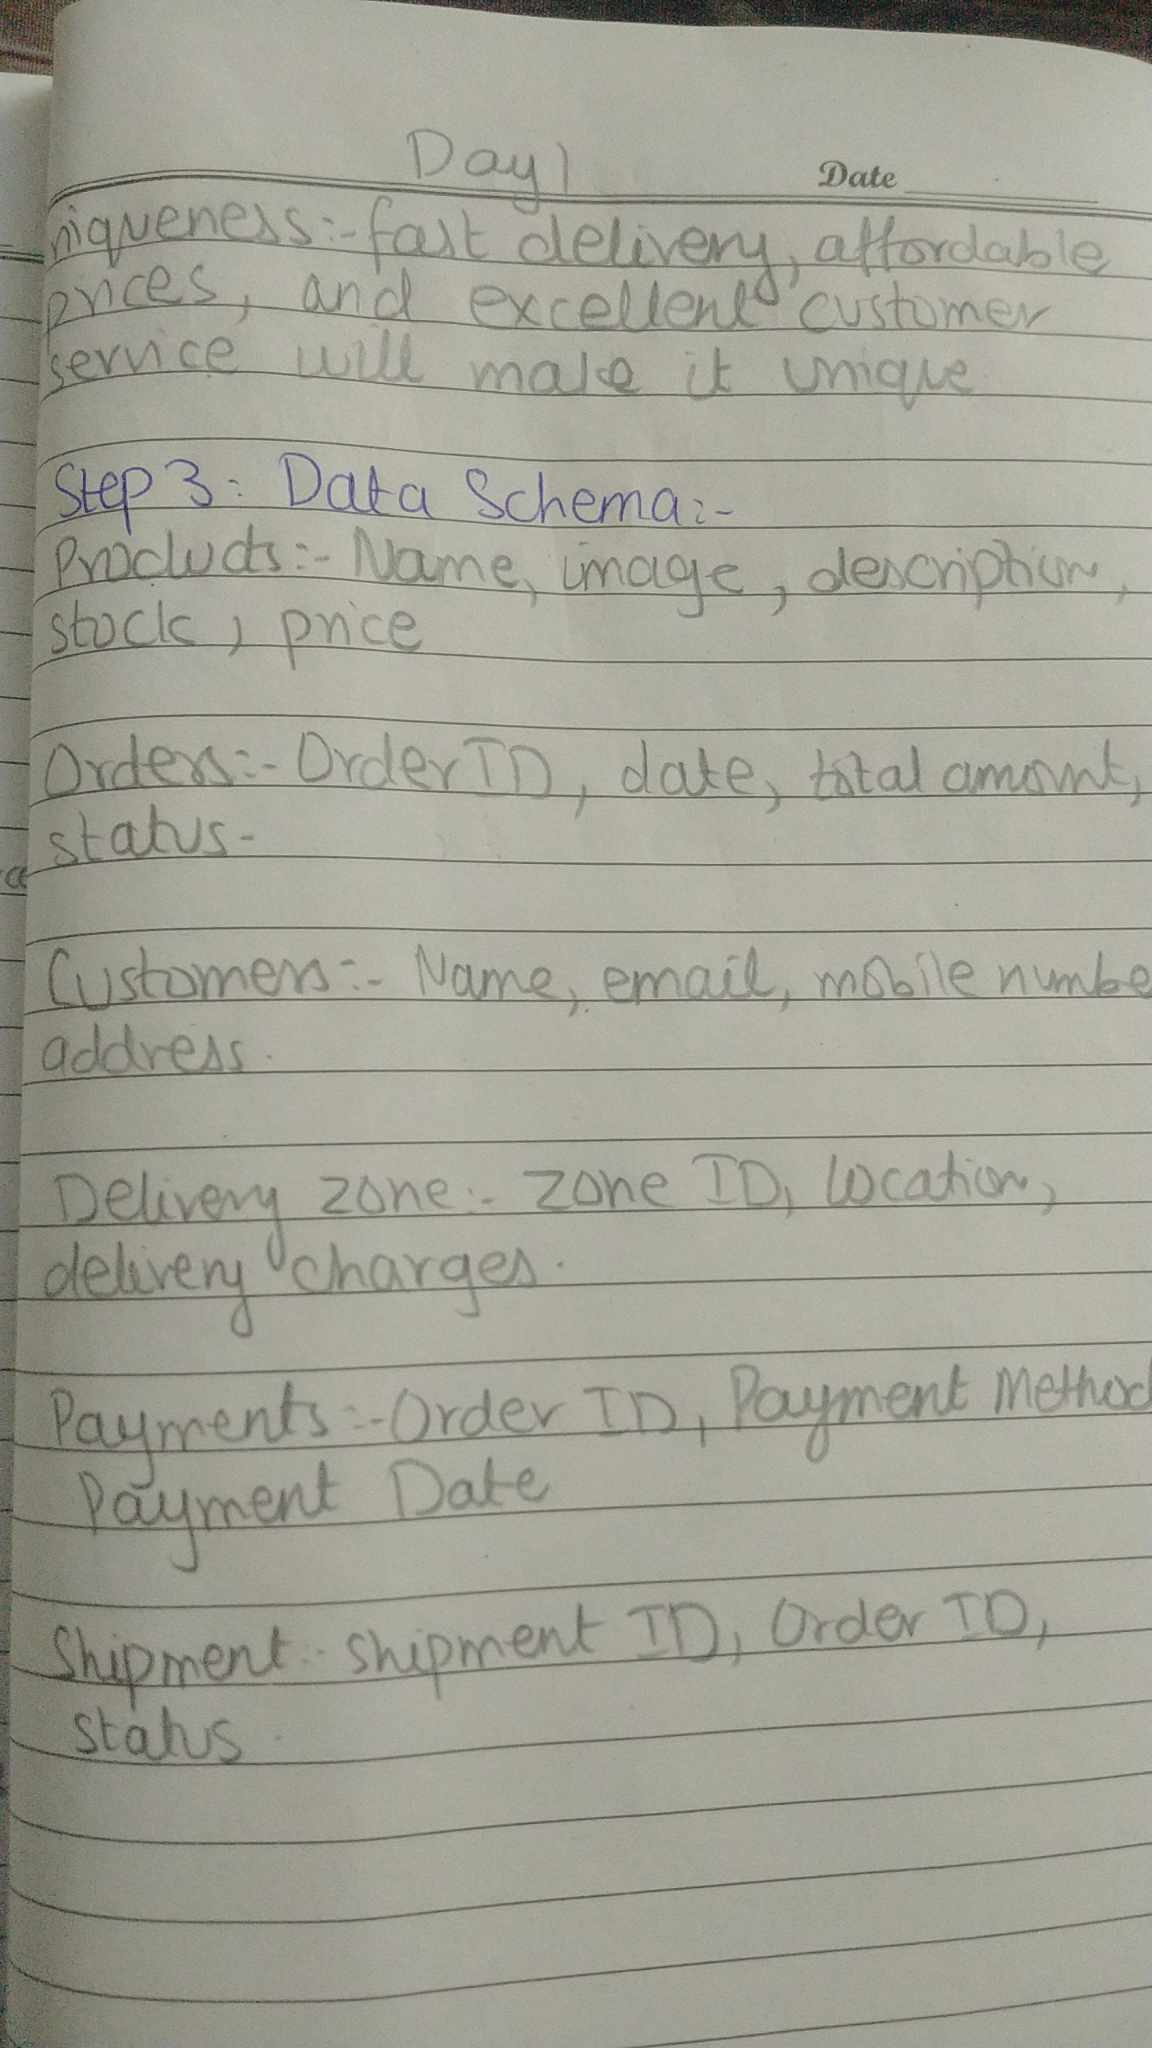 Day 1
Date
niqueness:- fast delivery, affordable
prices, and excellent customer
service will make it unique
Step 3: Data Schema:-
Products:- Name, image, description,
stock, price
Orders:- Order ID, date, total amount,
status-
Customers:- Name, email, mobile numbe
address.
Delivery zone:- zone ID, location,
delivery charges.
Payments:- Order ID, Payment Method
Payment Date
Shipment:- shipment ID, Order ID,
status.